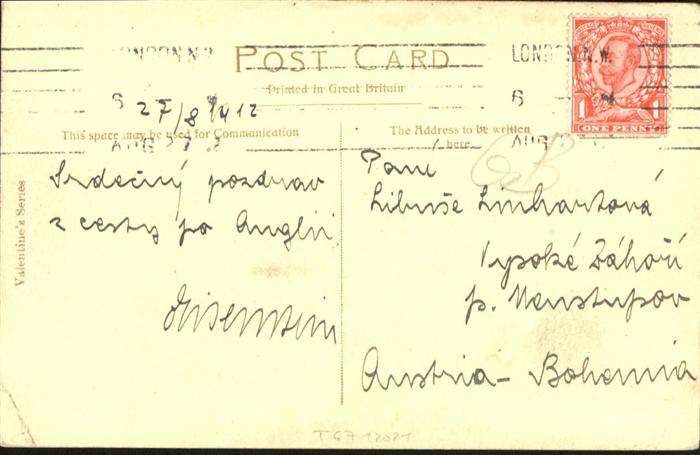 LONDON. N.W.
POST CARD
LONDON. N.W.
Printed in Great Britain
6
27/8 1912
AUG 27
6
AUG
ONE PENNY
1
1
This space may be used for Communication
The Address to be written here.
Valentine's Series
Srdečný pozdrav
z cesty po Anglii
Paní
Libuše Linhartová
Vysoké Záhoří
p. Neustupov
Austria - Bohemia